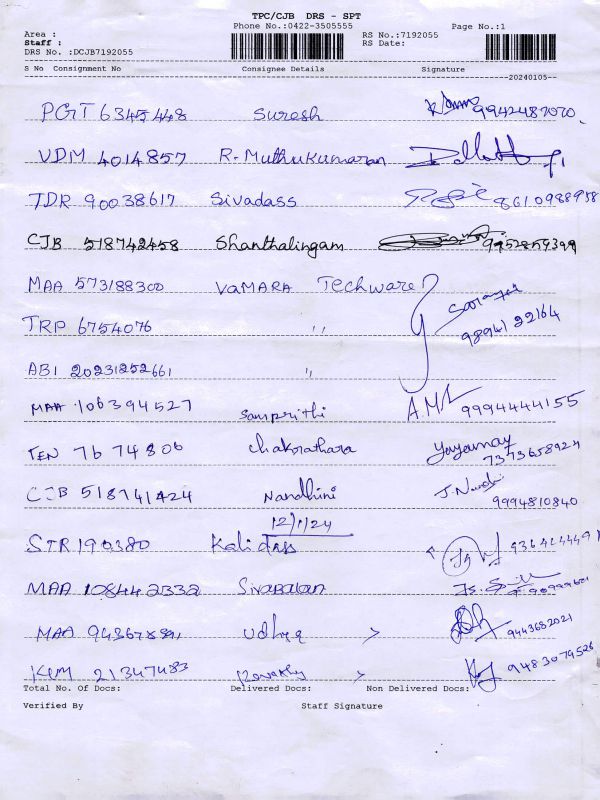 TPC/CJB DRS - SPT
Phone No.:0422-3505555 Page No.:1
Area : RS No.:7192055
Staff : RS Date:
DRS No. :DCJB7192055
S No Consignment No Consignee Details Signature
20240105--
PGT 6345448 Suresh 9942487070
VDM 4014857 R-Muthukumaran
TDR 90038617 Sivadass 8610988958
CJB 518742458 Shanthalingam
MAA 573188300 VAMARA Techware
TRP 6754076 " 9894122164
ABI 20231252661 "
MAA 106394527 Samprithi A.M 9994444155
TEN 7674806 Chakrathara 7373658924
CJB 518741424 Nandhini 9994810840
12/1/24
STR 190380 Kalidass
MAA 108442332 Sivabalan
MAA Udhya > 9443682021
KUM 21347483 > 9483079526
Total No. Of Docs: Delivered Docs: Non Delivered Docs:
Verified By Staff Signature